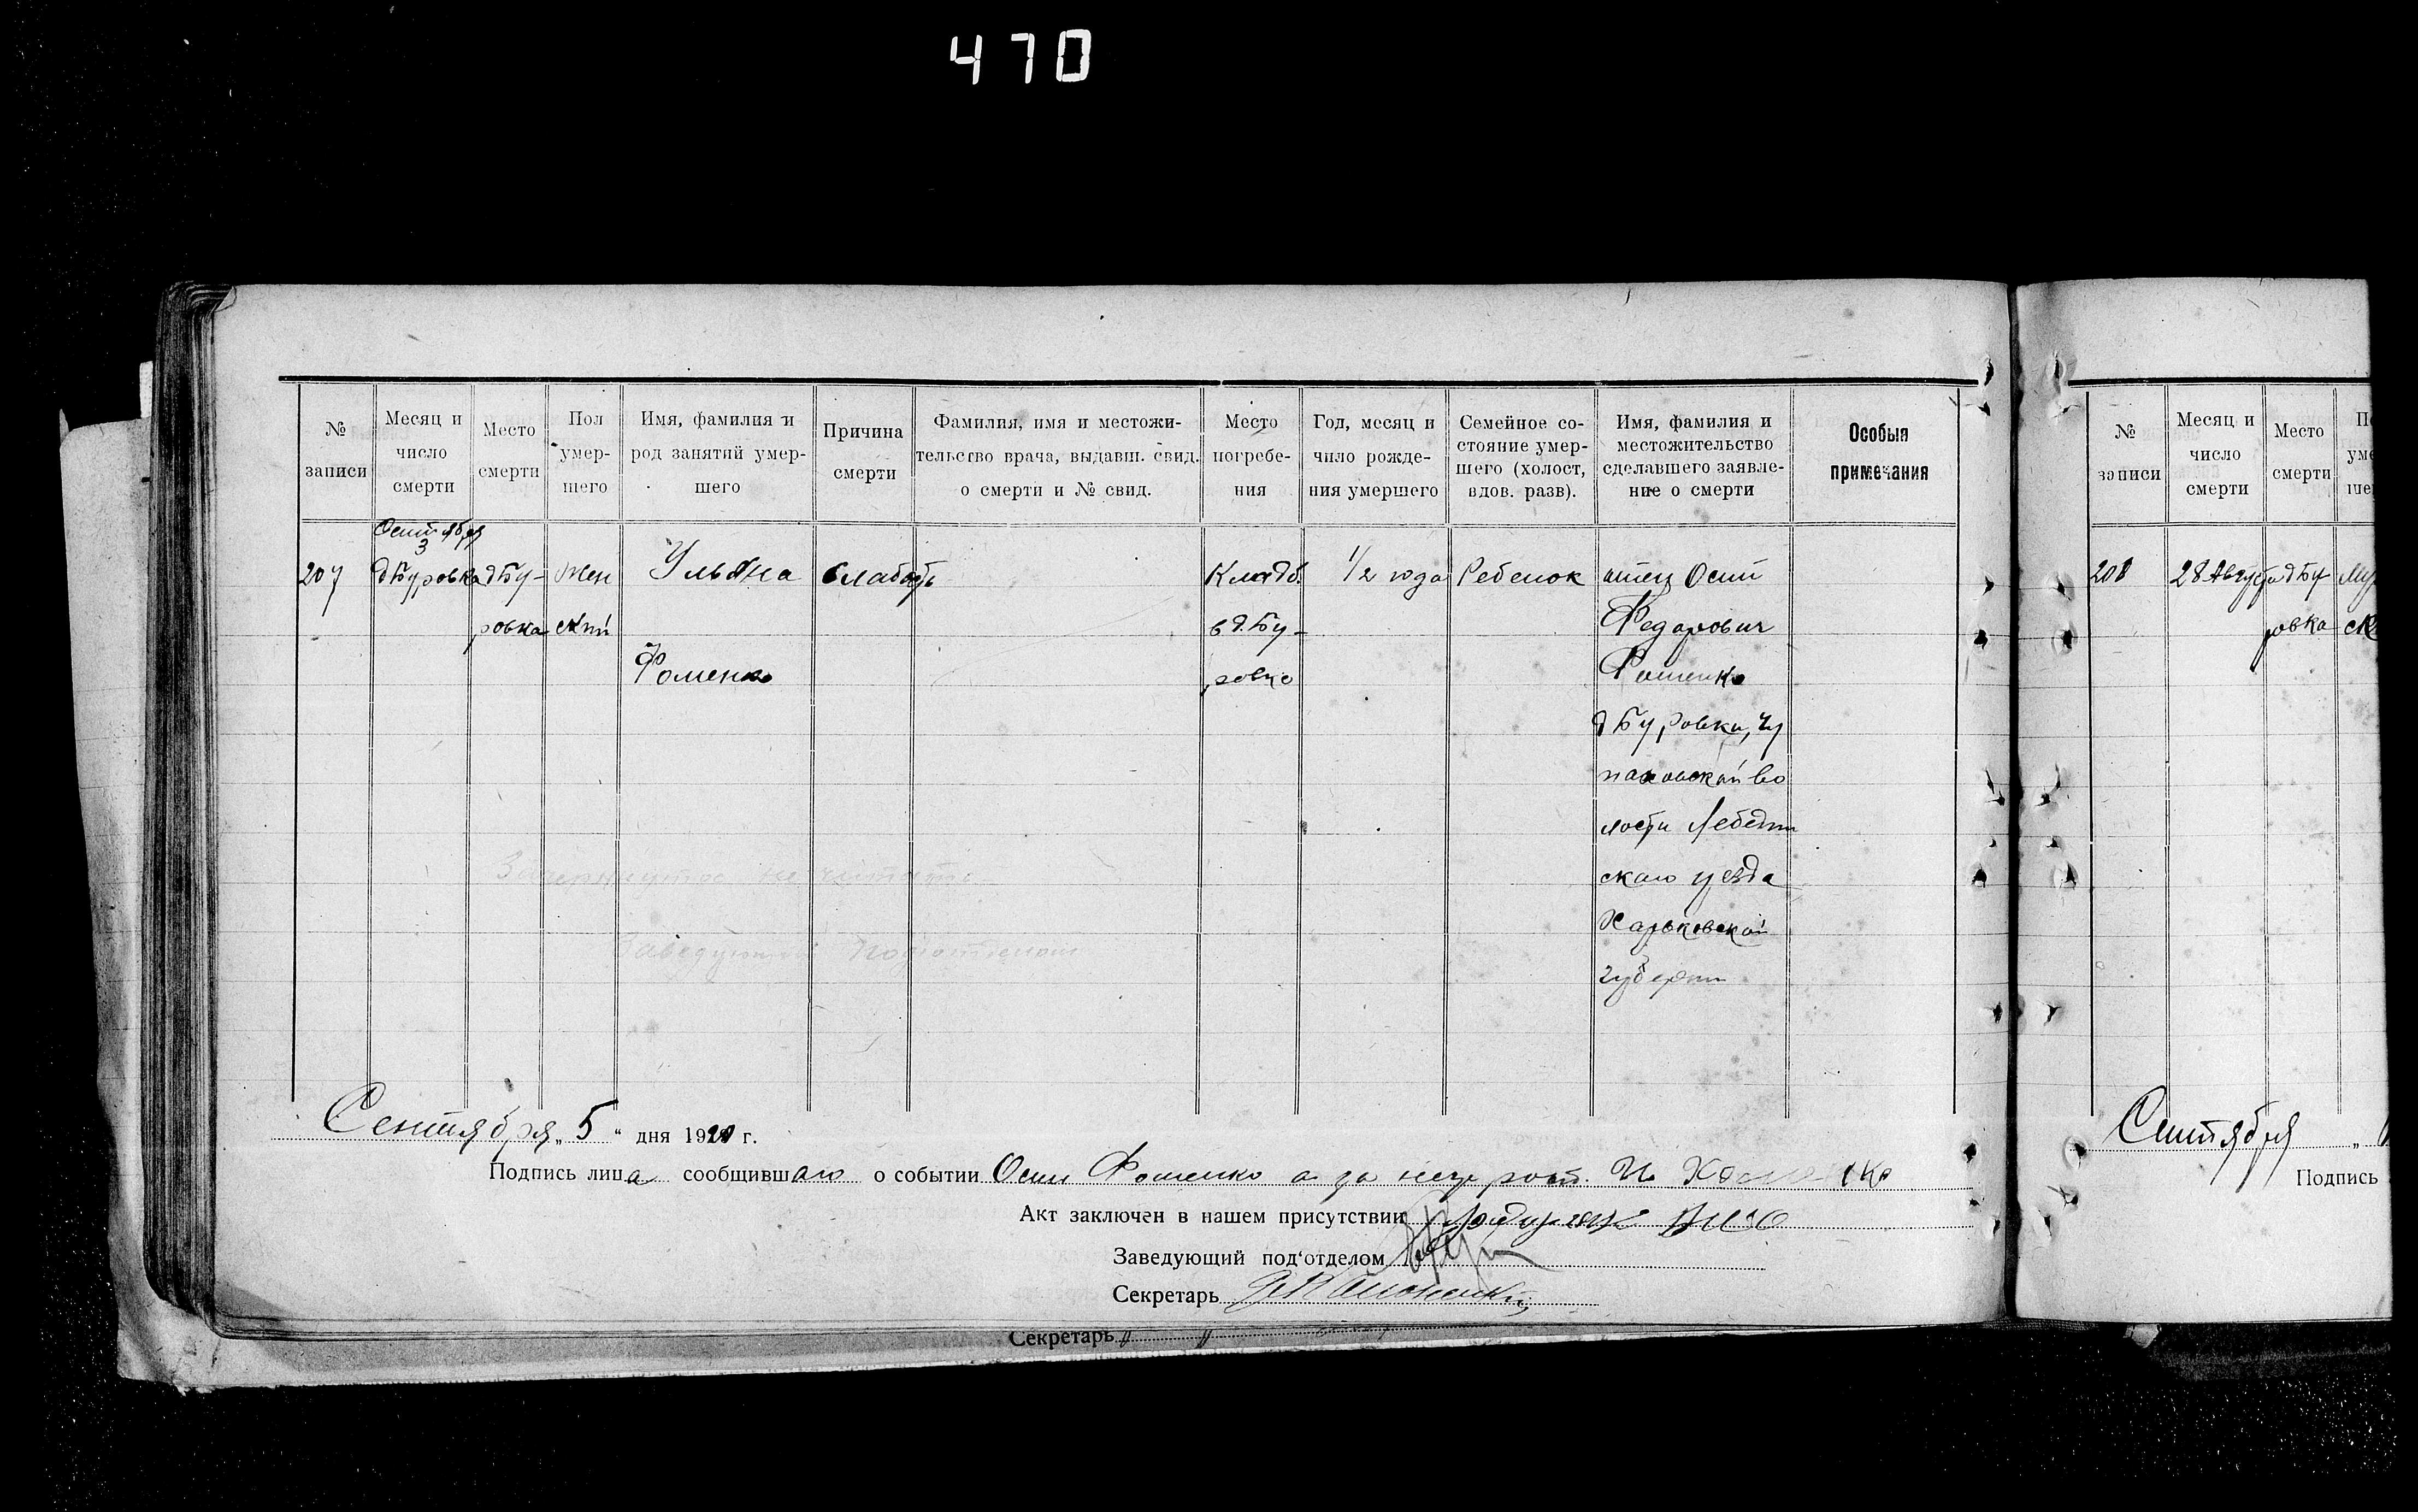 470
№ записи
Месяц и число смерти
Место смерти
Пол умер- шего
Имя, фамилия и род занятий умер- шего
Причина смерти
Фамилия, имя и местожи- тельство врача, выдавш. свид. о смерти и № свид.
Место погребе- ния
Год, месяц и чило рожде- ния умершего
Семейное со- стояние умер- шего (холост, вдов. разв).
Имя, фамилия и местожительство сделавшего заявле- ние о смерти
Особыя примечания
207
3
д Буровка
д Бу-
ровка
Жен
ский
Ульяна
Фоменко
Слабость
Кладб.
в д. Бу-
ровке
1/2 года
Ребенок
отец Осип
Федорович
Фоменко
д Буровки, Чу
паховской во
лости Лебедин
скаго уезда
Харьковской
губерни
Сентября „ 5 “ дня 1920 г.
Подпись лица сообщившаго о событии Осип Фоменко а за негр
Акт заключен в нашем присутствии
Заведующий под‘отделом
Секретарь
Секретарь
№ записи
Месяц и число смерти
Место смерти
208
28 Августа
д Бу
ровка
Сентября „
Подпись